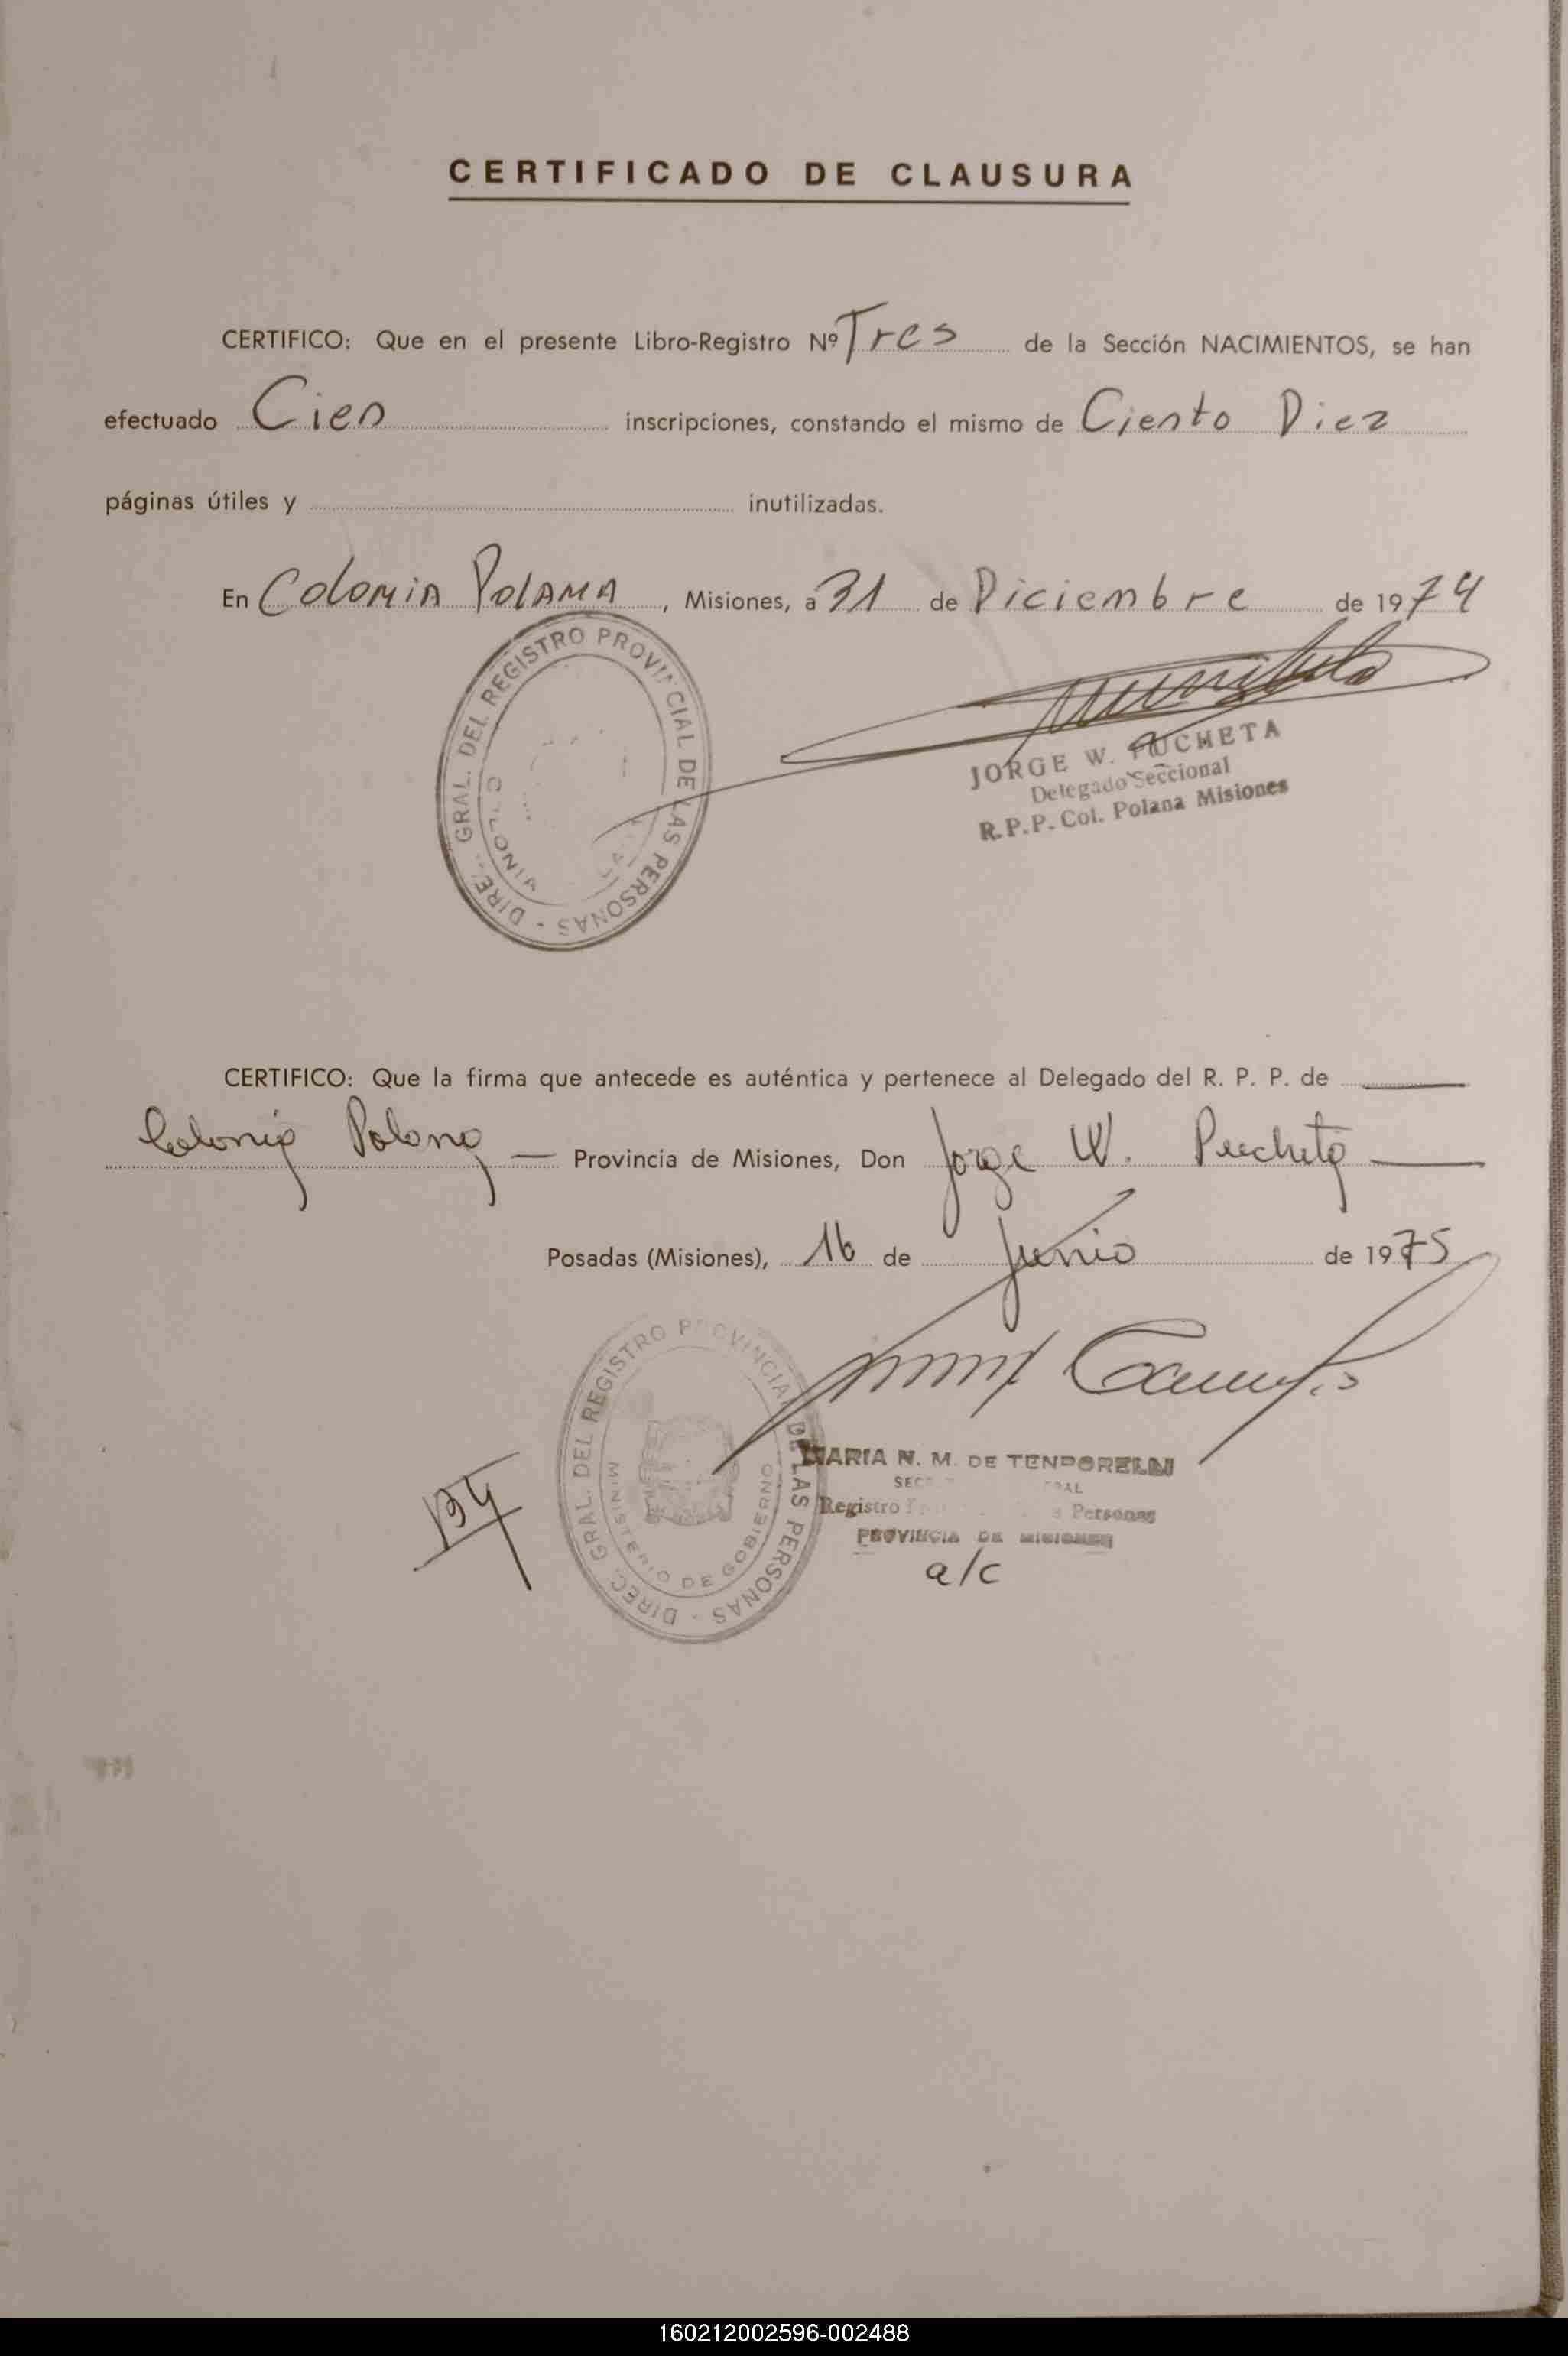 CERTIFICADO DE CLAUSURA
CERTIFICO: Que en el presente Libro-Registro Nº Tres de la Sección NACIMIENTOS, se han
efectuado Cien inscripciones, constando el mismo de Ciento Diez
páginas útiles y inutilizadas.
En Colonia Polana, Misiones, a 31 de Diciembre de 1974
DIREC. GRAL. DEL REGISTRO PROVINCIAL DE LAS PERSONAS -
COLONIA
JORGE W. PUCHETA
Delegado Seccional
R.P.P. Col. Polana Misiones
CERTIFICO: Que la firma que antecede es auténtica y pertenece al Delegado del R. P. P. de
Colonia Polana — Provincia de Misiones, Don Jorge W. Pucheta —
Posadas (Misiones), 16 de Junio de 1975
DIREC. GRAL. DEL REGISTRO PROVINCIAL DE LAS PERSONAS -
MINISTERIO DE GOBIERNO
MARIA N. M. DE
Registro Personas
PROVINCIA DE MISIONES
a/c
134
160212002596-002488